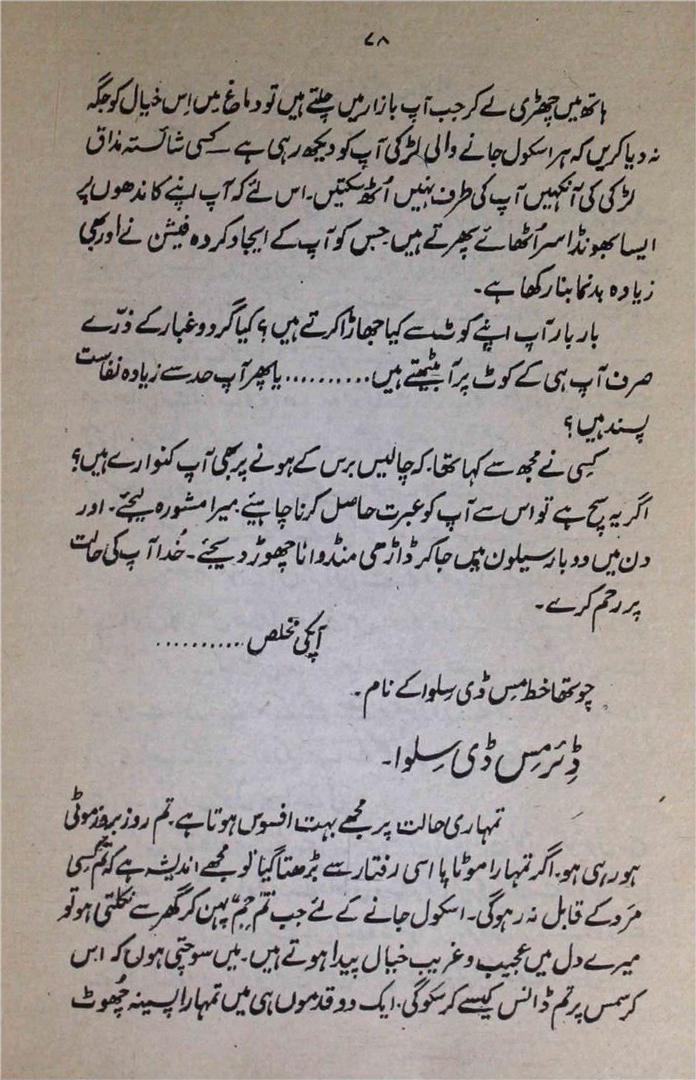 ۷۸
ہاتھ میں چھڑی لے کر جب آپ بازار میں چلتے ہیں تو دماغ میں اس خیال کو جگہ
نہ دیا کریں کہ ہر اسکول جانے والی لڑکی آپ کو دیکھ رہی ہے ــ کسی شائستہ مذاق
لڑکی کی آنکھیں آپ کی طرف نہیں اُٹھ سکتیں۔ اس لئے کہ آپ اپنے کاندھوں پر
ایسا بھونڈا سر اُٹھائے پھرتے ہیں جس کو آپ کے ایجاد کردہ فیشن نے اور بھی
زیادہ بدنما بنا رکھا ہے۔
بار بار آپ اپنے کوٹ سے کیا جھاڑا کرتے ہیں؟ کیا گرد و غبار کے ذرّے
صرف آپ ہی کے کوٹ پر آ بیٹھتے ہیں.......... یا پھر آپ حد سے زیادہ نفاست
پسند ہیں؟
کسی نے مجھ سے کہا تھا۔ کہ چالیس برس کے ہونے پر بھی آپ کنوارے ہیں؟
اگر یہ سچ ہے تو اس سے آپ کو عبرت حاصل کرنا چاہیئے۔ میرا مشورہ لیجئے۔ اور
دن میں دو بار سیلون میں جا کر ڈاڑھی منڈوانا چھوڑ دیجئے۔ خُدا آپ کی حالت
پر رحم کرے۔
آپکی مخلص ...........
چوتھا خط مس ڈی سلوا کے نام۔
ڈئر مِس ڈی سِلوا۔
تمہاری حالت پر مجھے بہت افسوس ہوتا ہے۔ تم روز بروز موٹی
ہو رہی ہو۔ اگر تمہارا موٹاپا اسی رفتار سے بڑھتا گیا تو مجھے اندیشہ ہے کہ تم کسی
مَرد کے قابل نہ رہو گی۔ اسکول جانے کے لئے جب تم ”جِم“ پہن کر گھر سے نکلتی ہو تو
میرے دل میں عجیب و غریب خیال پیدا ہوتے ہیں۔ میں سوچتی ہوں کہ اس
کرسمس پر تم ڈانس کیسے کر سکو گی۔ ایک دو قدموں ہی میں تمہارا پسینہ چُھوٹ